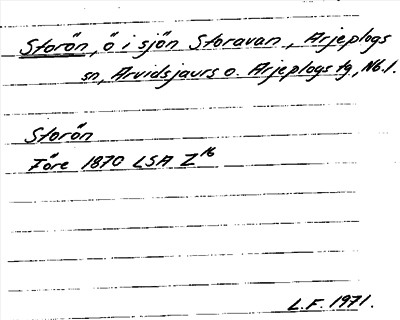 Storön, ö i sjön Storavan, Arjeplogs
sn, Arvidsjaurs o. Arjeplogs tg, Nb.l.
Storön
Före 1870 LSA Z16
L.F. 1971.